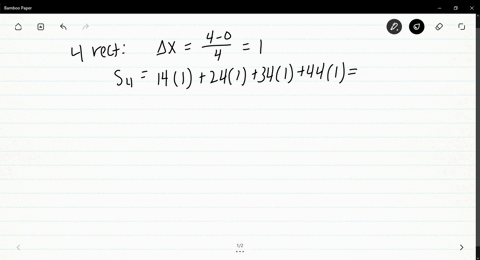 Bamboo Paper
4 rect: Δx = (4-0)/4 = 1
S4 = 14(1) + 24(1) + 34(1) + 44(1) =
1/2